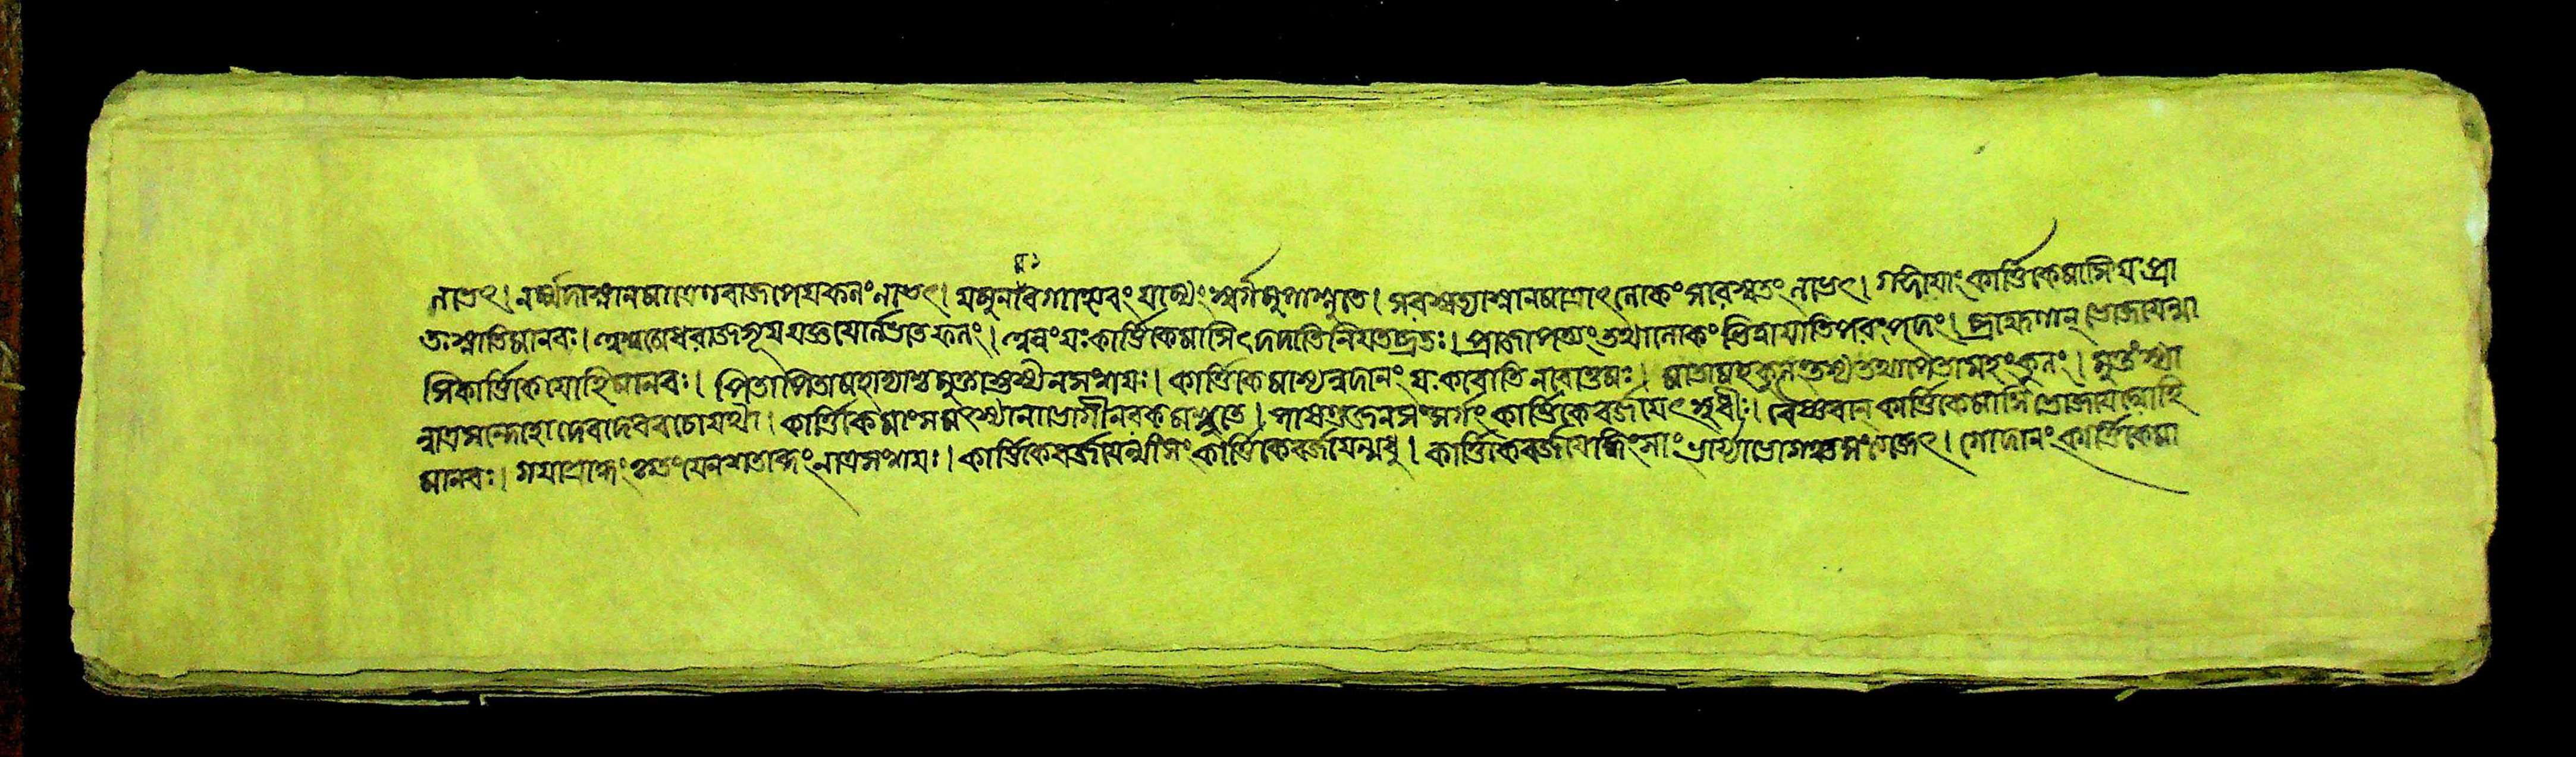 লাভেৎ। নর্ম্মদাস্নানমাত্রেণ বাজপেয়ফলং লভেৎ। যমুনা বগাহ্যেবং যাম্যং স্বর্গমুপাশ্নুতে। সরস্বত্যাস্নানমাত্রাৎ লোকং সারস্বতং লভেৎ। গঙ্গায়াং কার্ত্তিকেমাসি যঃ প্রা
তঃস্নাতি মানবঃ। অশ্বমেধরাজসূয়যজ্ঞয়োর্লভতে ফলং। অন্নং যঃ কার্ত্তিকেমাসি দদাতি নিয়তব্রতঃ। প্রাজাপত্যং তথা লোকং ভিত্বা যাতি পরং পদং। ব্রাহ্মণান্ ভোজয়েন্মা
সি কার্ত্তিকে যো হি মানবঃ। পিতা পিতামহাদ্যাশ্চ মুক্তাস্তস্য ন সংশয়ঃ। কার্ত্তিকেমাস্যন্নদানং যঃ করোতি নরোত্তমঃ। মাতামহকুলং তস্য তথা পিতামহং কুলং। মুক্তং স্যা
ন্নাত্র সন্দেহো দেবাদেববচো যথা। কার্ত্তিকে মাংসমৎস্যানাং ভোগী নরকমশ্নুতে। পাষণ্ডজনসংসর্গং কার্ত্তিকে বর্জয়েৎ সুধীঃ। বৈষ্ণবান্ কার্ত্তিকেমাসি ভোজয়েদ্যো হি
মানবঃ। গয়াশ্রাদ্ধং কৃতং যেন শতাব্দং নাত্র সংশয়ঃ। কার্ত্তিকে বর্জয়েন্মাংসং কার্ত্তিকে বর্জয়েন্মধু। কার্ত্তিকে বর্জয়েদ্ধিংসাং ভার্য্যাভোগঞ্চ সংত্যজেৎ। গোদানং কার্ত্তিকেমা